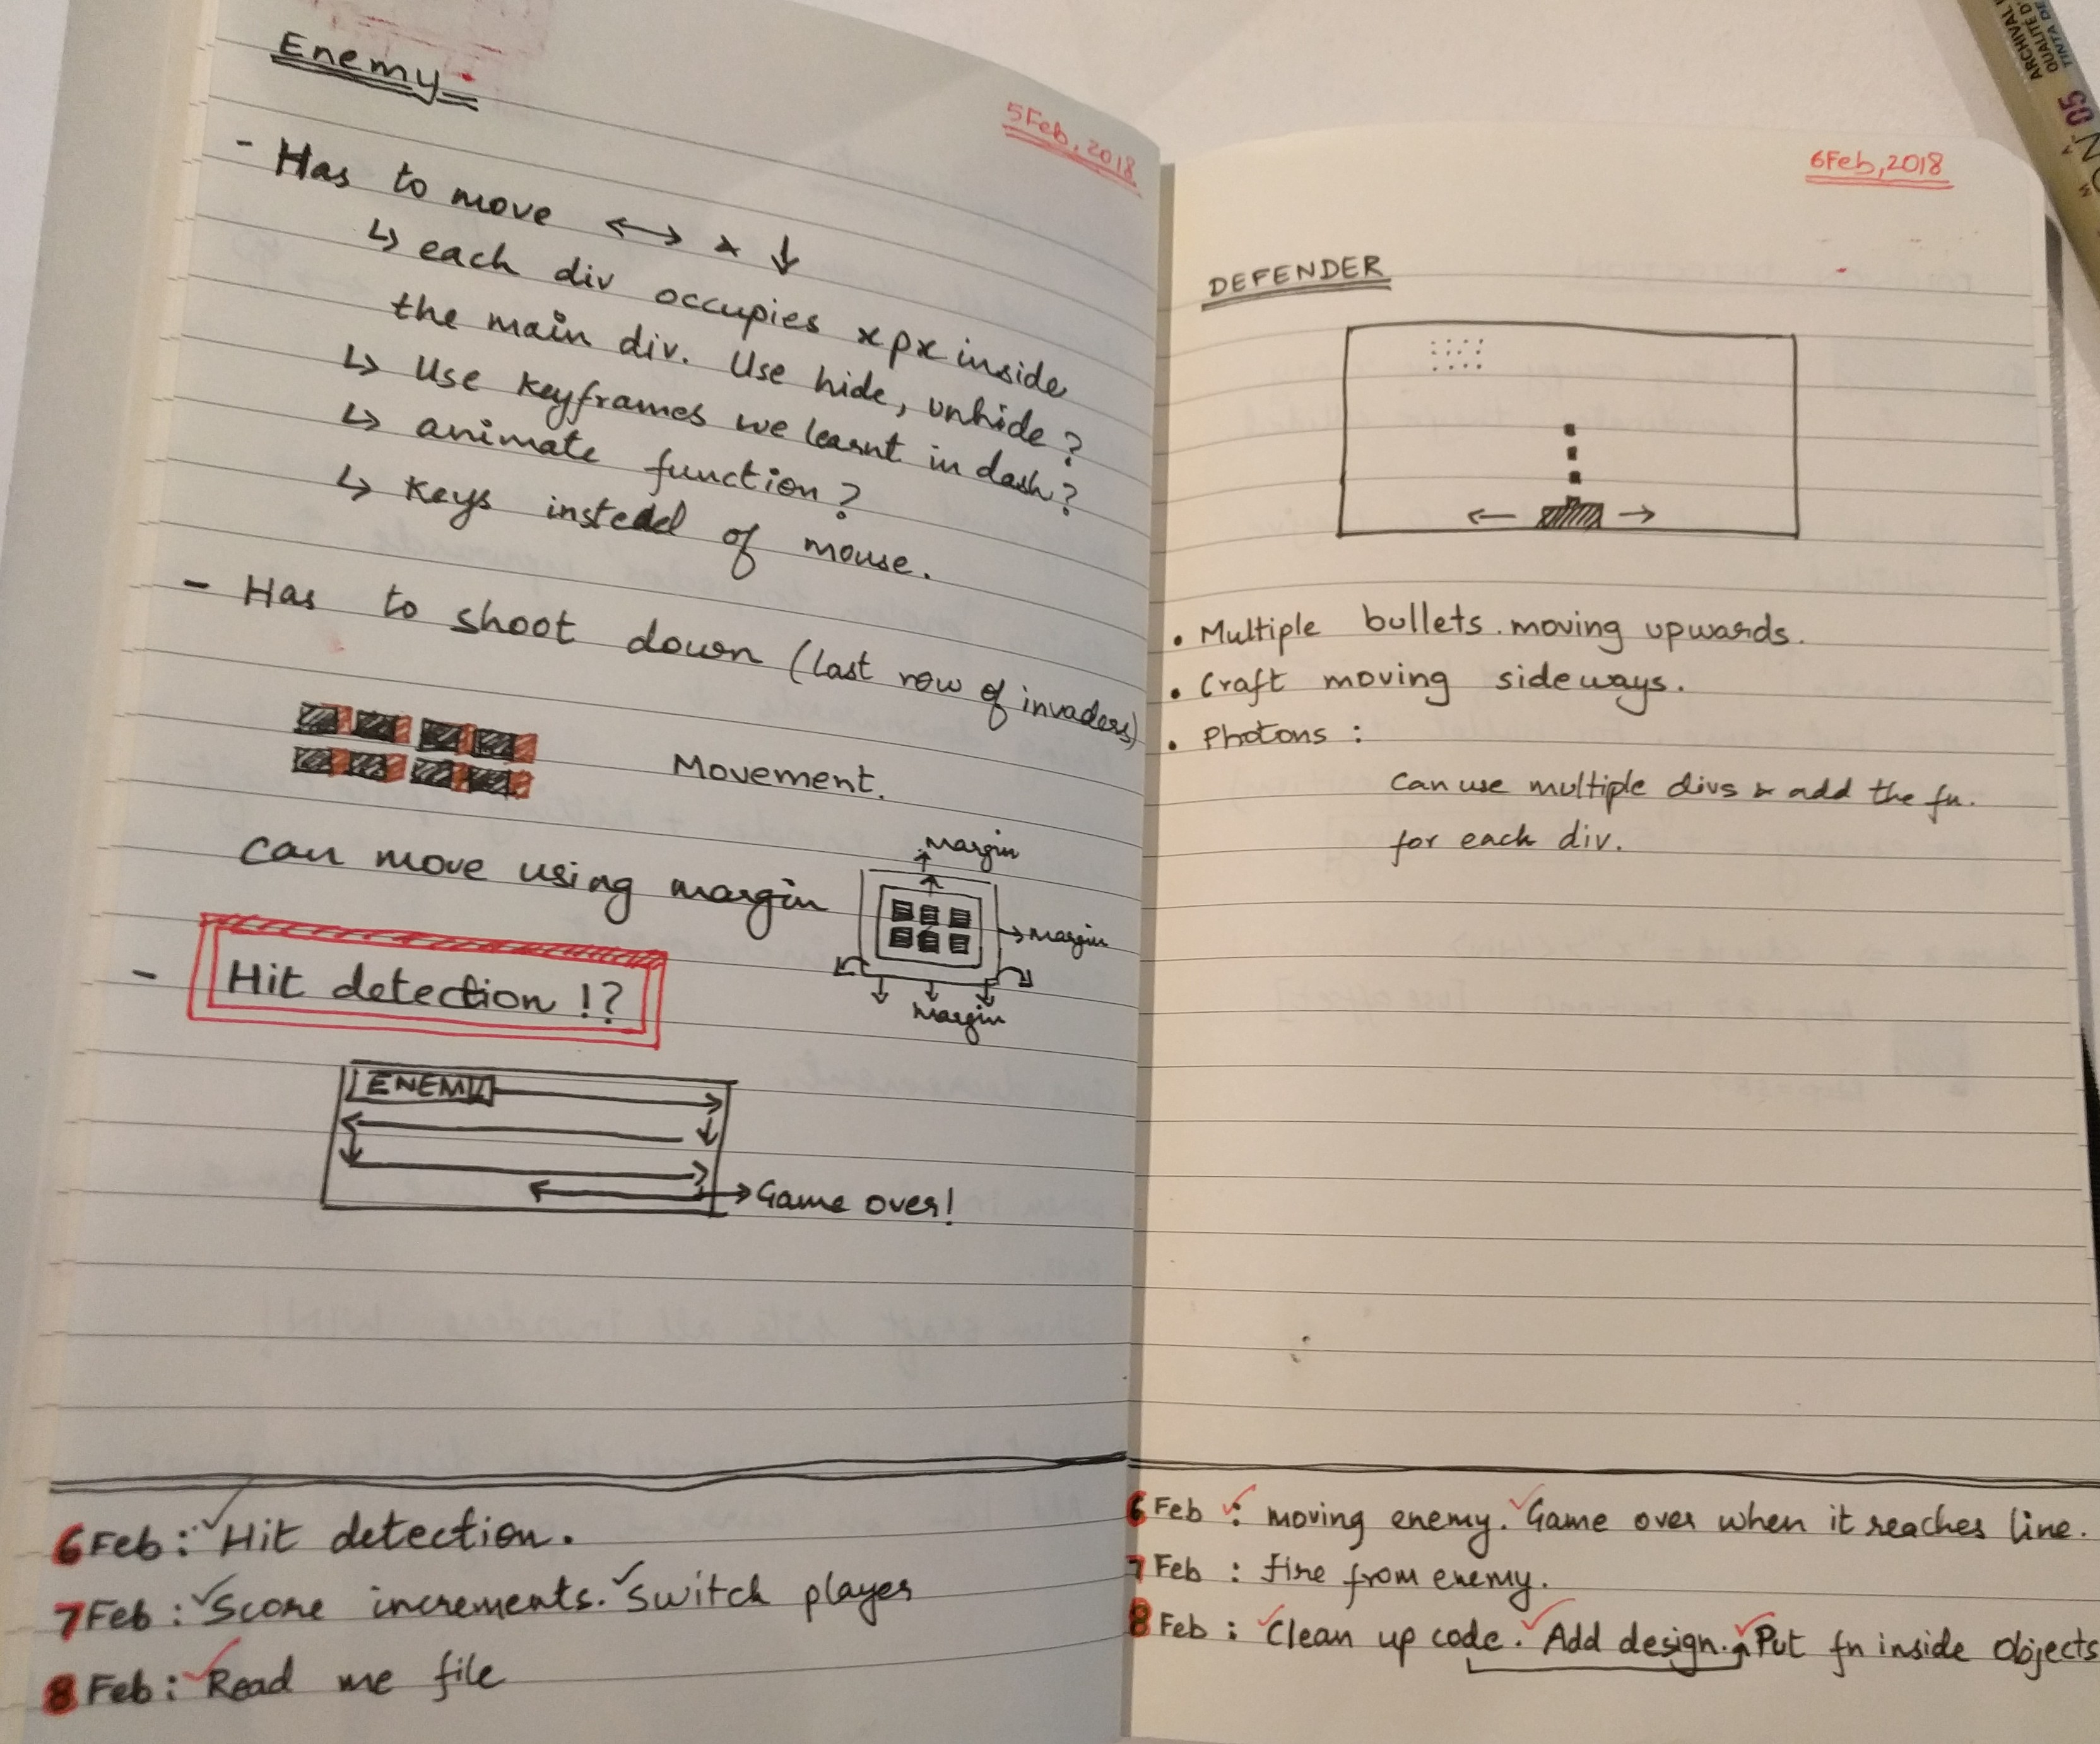 Enemy
5Feb, 2018
- Has to move ↔ & ↓
↳ each div occupies xpx inside
the main div. Use hide, unhide?
↳ Use keyframes we learnt in dash?
↳ animate function?
↳ Keys instead of mouse.
- Has to shoot down (last row of invaders)
Movement.
can move using margin
Margin
Margin
Margin
- Hit detection !?
ENEMY
Game over!
6Feb: ✓Hit detection.
7Feb: ✓Score increments. ✓Switch player
8Feb: ✓Read me file
6Feb, 2018
DEFENDER
• Multiple bullets moving upwards.
• Craft moving sideways.
• Photons :
Can use multiple divs & add the fn.
for each div.
6Feb ✓: moving enemy. ✓Game over when it reaches line.
7Feb : fire from enemy.
8Feb : ✓Clean up code. ✓Add design. ✓Put fn inside Objects
ARCHIVAL
QUALITÉ D'
TINTA DE
05